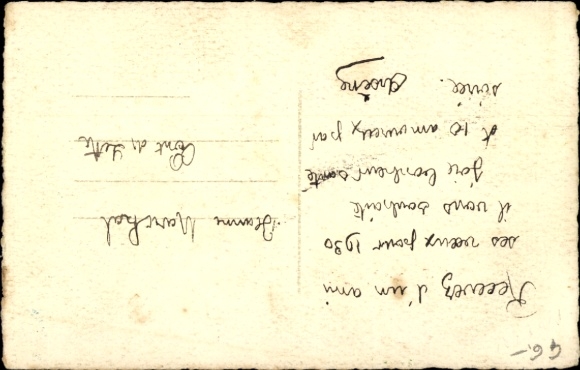 Recevez d'un ami
ses voeux pour 1930
il vous souhaite
joie bonheur santé
et 10 amoureux par
soirée.
Arsène
Jeanne Marchal
Pont de
46.-